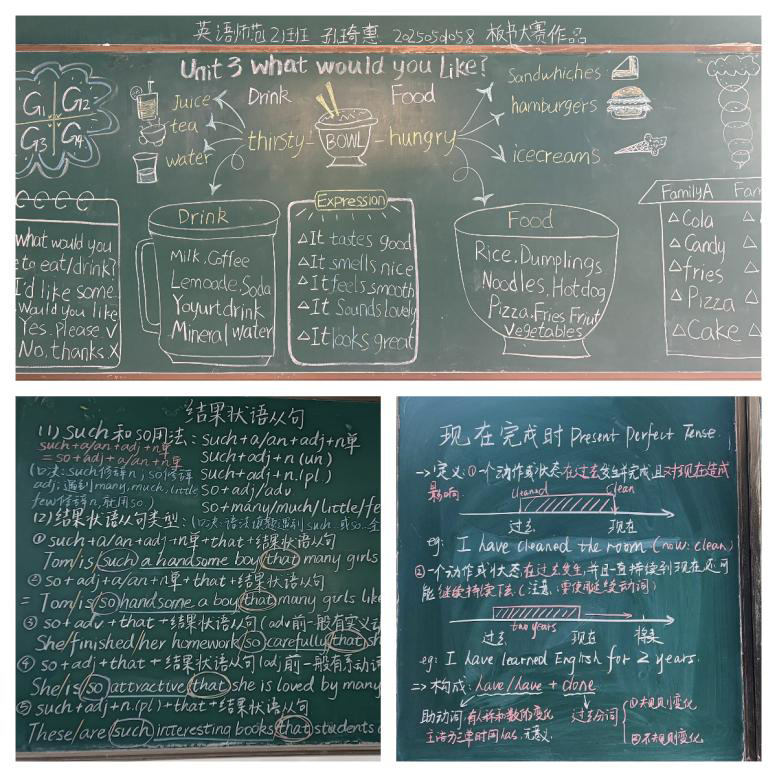 英语师范2班 孙琦惠 20250501058 板书大赛作品
Unit 3 what would you like?
G1 G2
G3 G4
Juice
tea
water
Drink
thirsty
BOWL
Food
hungry
Sandwhiches
hamburgers
icecreams
what would you
to eat/drink?
I'd like some
Would you like
Yes. Please √
No. thanks X
Drink
Milk. Coffee
Lemoade. Soda
Yoyurt drink
Mineral water
Expression
△It tastes good
△It smells nice
△It feels smooth
△It Sounds lovely
△It looks great
Food
Rice. Dumplings
Noodles. Hotdog
Pizza. Fries Friut
Vegetables
FamilyA Fam
△Cola
△Candy
△fries
△Pizza
△Cake
结果状语从句
(1) such和so用法:
such+a/an+adj+n单
= so+adj+a/an+n单
(口诀: such修辞n; so修辞
adj; 遇到many, much, little
few修辞n, 就用so)
such+a/an+adj+n单
such+adj+n (un)
such+adj+n.(pl)
so+adj/adv
so+many/much/little/fe
(2)结果状语从句类型: (口诀:语法填题遇到such, 或so
① such+a/an+adj+n单+that+结果状语从句
Tom/is such a handsome boy that many girls
② so+adj+a/an+n单+that+结果状语从句
= Tom/is so handsome a boy that many girls like
③ so+adv+that+结果状语从句(adv前一般有实义动
She/finished/her homework so carefully that sh
④ so+adj+that+结果状语从句(adj前一般有系动词
She/is so attractive that she is loved by many
⑤ such+adj+n.(pl)+that+结果状语从句
These/are such interesting books that students
现在完成时 Present Perfect Tense.
→定义:①一个动作或状态在过去发生并完成,且对现在造成
影响.
cleaned clean
过去 现在
eg: I have cleaned the room (now: clean)
②一个动作或状态在过去发生并且一直持续到现在还可
能继续持续下去.(注意:要使用延续动词)
two years
过去 现在 将来
eg: I have learned English for 2 years.
⇒ 构成: have/have + done
助动词 有人称和数的变化 过去分词 ①规则变化
主语为三单时用has, 无意义. ②不规则变化